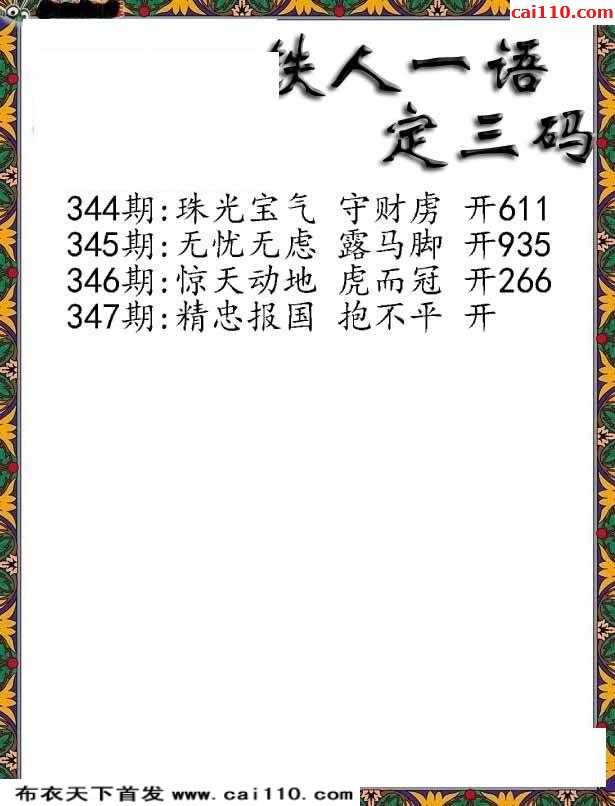 cai110.com
铁人一语
定三码
344期:珠光宝气 守财虏 开611
345期:无忧无虑 露马脚 开935
346期:惊天动地 虎而冠 开266
347期:精忠报国 抱不平 开
布衣天下首发 www.cai110.com